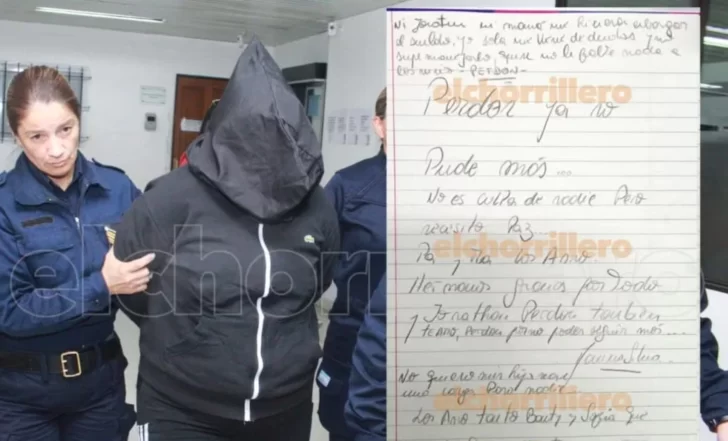 Ni Jonatan ni mamá me hicieron
el sueldo, yo sola me llené de deudas y no
supe manejarlo, quise no le falte nada a
los míos - PERDON -
elchorrillero
Perdon ya no
Pude más...
No es culpa de nadie Pero
necesito Paz...
elchorrillero
Pa y Ma los Amo.
Hermanos gracias por Todo
y Jonathan Perdon también
te Amo, Perdon por no poder seguir más...
No quiero mis hijos sean
una carga Para nadie
elchorrillero
Los Amo tanto y Sofia que
elchorrillero